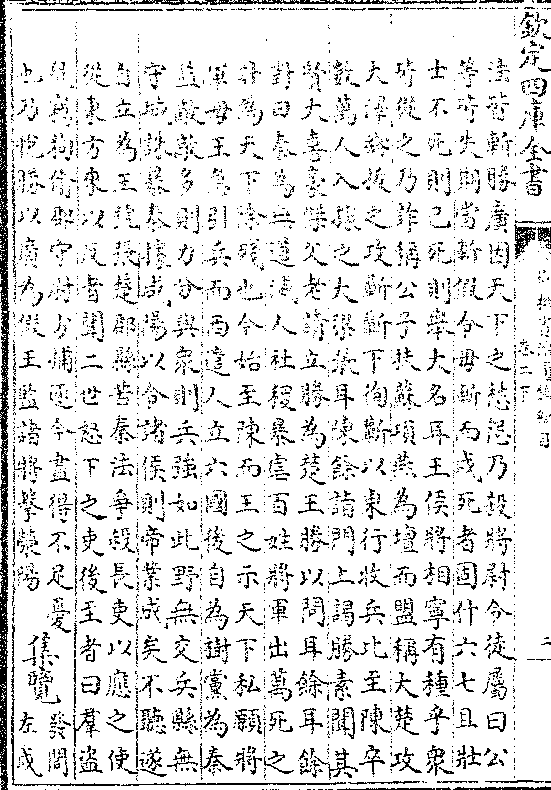 欽定四庫全書
卷二下
二
法皆斬勝廣因天下之愁怨乃殺將尉令徒屬曰公
等皆失期當斬假令毋斬而戍死者固什六七且壯
士不死則已死則舉大名耳王侯將相寧有種乎衆
皆從之乃詐稱公子扶蘇項燕為壇而盟稱大楚攻
大澤鄉拔之攻蘄蘄下徇蘄以東行收兵比至陳卒
數萬人入據之大梁張耳陳餘詣門上謁勝素聞其
賢大喜豪傑父老請立勝為楚王勝以問耳餘耳餘
對曰秦為無道滅人社稷暴虐百姓將軍出萬死之
計為天下除殘也今始至陳而王之示天下私願將
軍毋王急引兵而西遣人立六國後自為樹黨為秦
益敵敵多則力分與衆則兵強如此野無交兵縣無
守城誅暴秦據咸陽以令諸侯則帝業成矣不聽遂
自立為王號張楚郡縣苦秦法爭殺長吏以應之使
從東方來以反者聞二世怒下之吏後至者曰羣盜
鼠竊狗偷郡守尉方捕逐今盡得不足憂
也乃悅勝以廣為假王監諸將擊滎陽
集覽
發閭
左戍